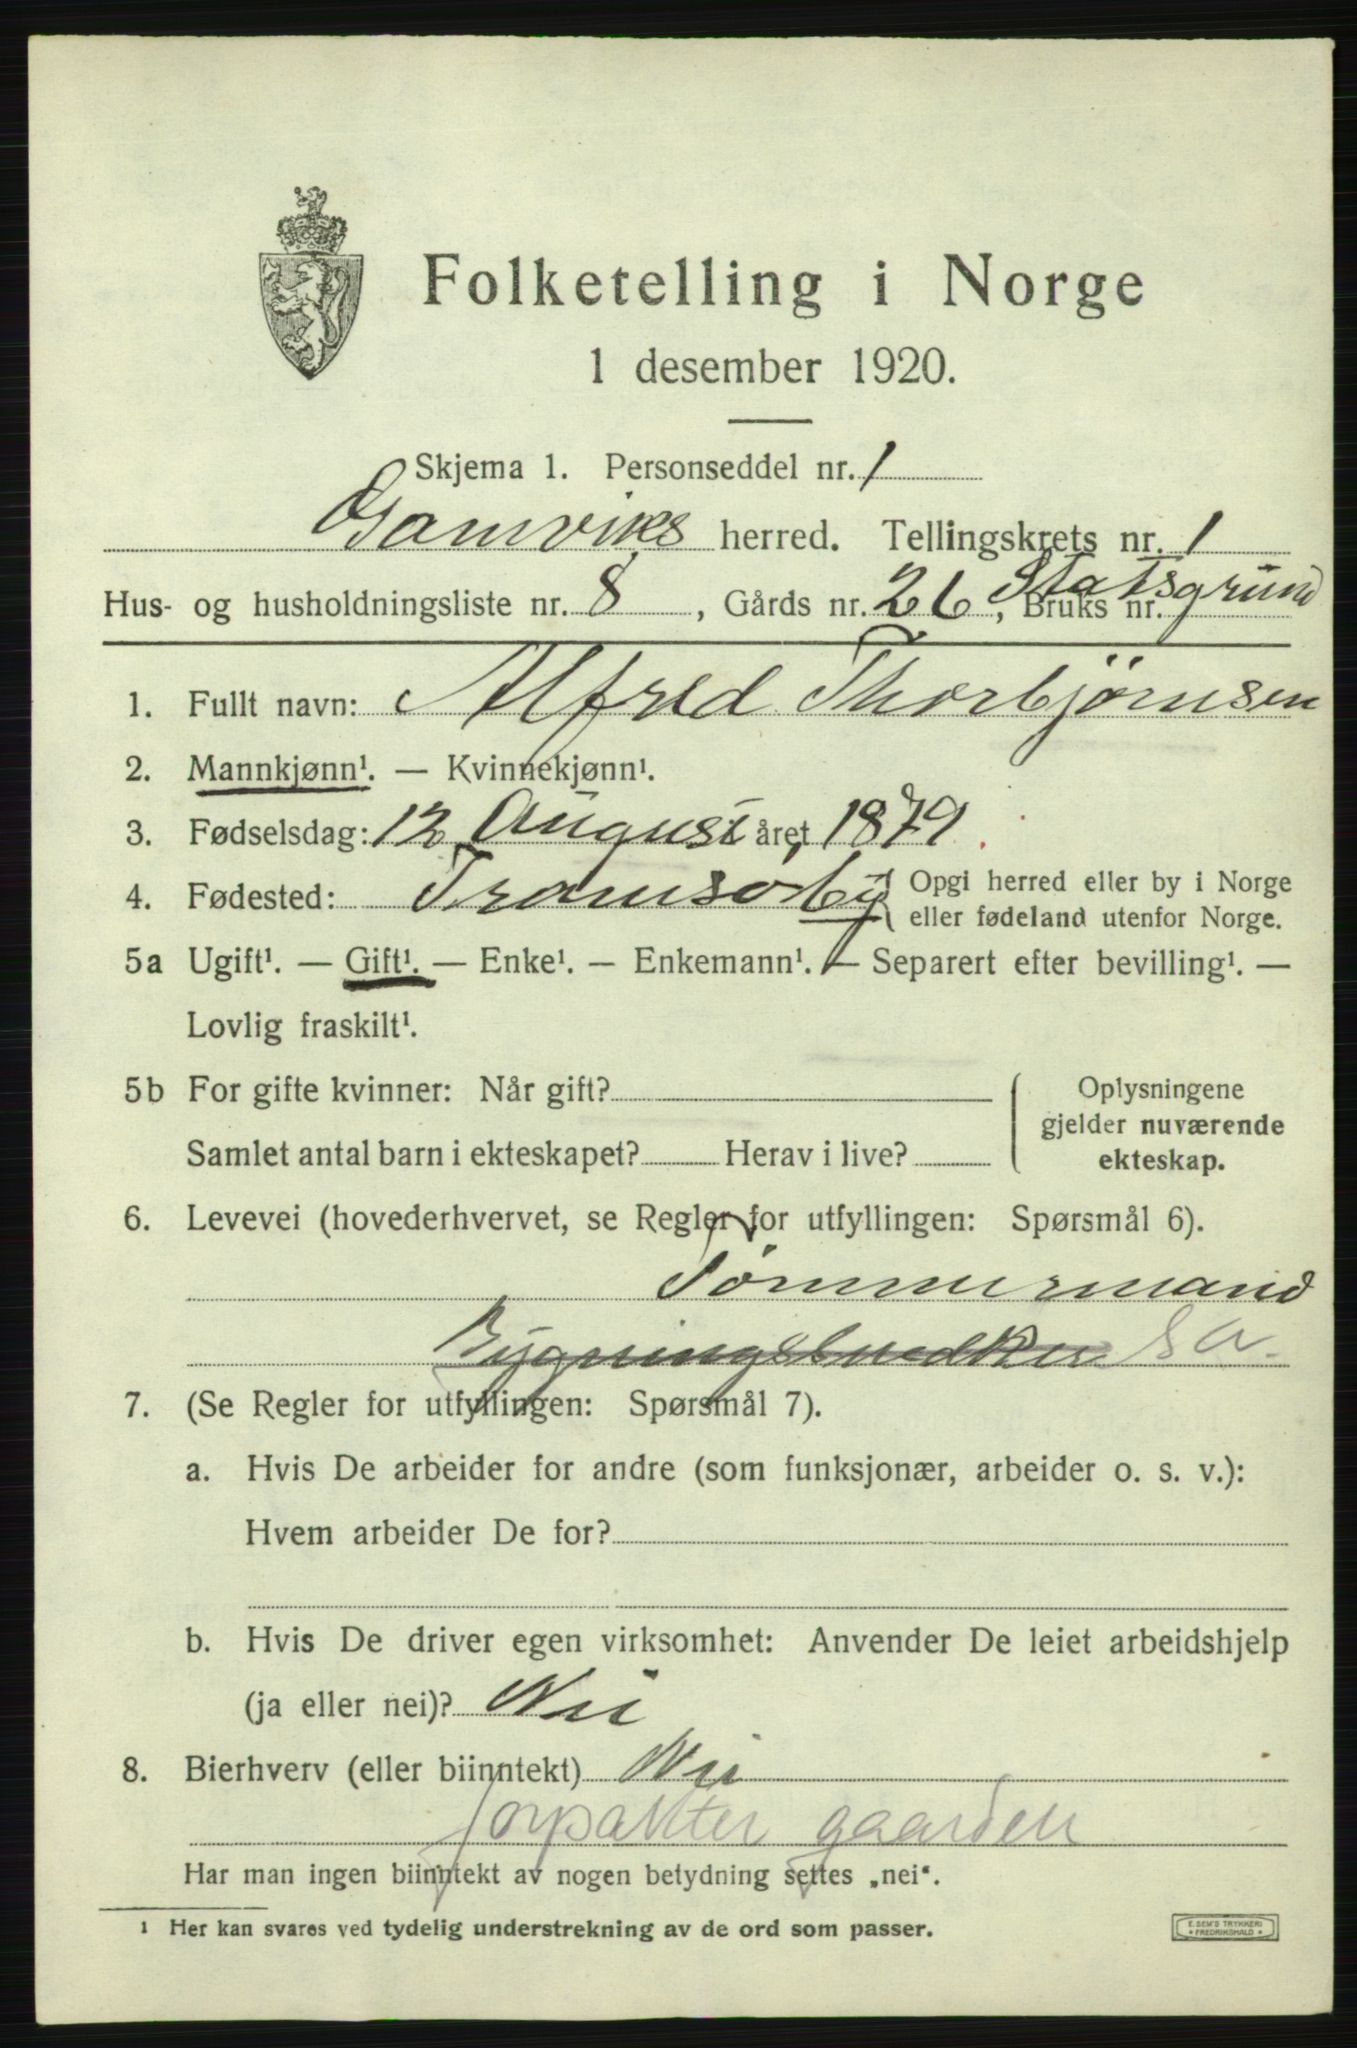 Folketelling i Norge
1 desember 1920.
Skjema 1. Personseddel nr. 1
Gamviks herred. Tellingskrets nr. 1
Hus- og husholdningsliste nr. 8, Gårds nr. 26, Bruks nr. Statsgrund
1. Fullt navn: Alfred Thorbjørnsen
2. Mannkjønn¹. — Kvinnekjønn¹.
3. Fødselsdag: 12 August året 1879
4. Fødested: Tromsø by { Opgi herred eller by i Norge
eller fødeland utenfor Norge.
5a Ugift¹. — Gift¹. — Enke¹. — Enkemann¹. — Separert efter bevilling¹. —
Lovlig fraskilt¹.
5b For gifte kvinner: Når gift?
Samlet antal barn i ekteskapet? Herav i live?
Oplysningene
gjelder nuværende
ekteskap.
6. Levevei (hovederhvervet, se Regler for utfyllingen: Spørsmål 6).
Tømmermand
Bygningssnedker
7. (Se Regler for utfyllingen: Spørsmål 7).
a. Hvis De arbeider for andre (som funksjonær, arbeider o. s. v.):
Hvem arbeider De for?
b. Hvis De driver egen virksomhet: Anvender De leiet arbeidshjelp
(ja eller nei)? Nei
8. Bierhverv (eller biinntekt) Nei
forpakter gaarden
Har man ingen biinntekt av nogen betydning settes „nei“.
¹ Her kan svares ved tydelig understrekning av de ord som passer.
E. SEM'S TRYKKERI
• FREDRIKSHALD •